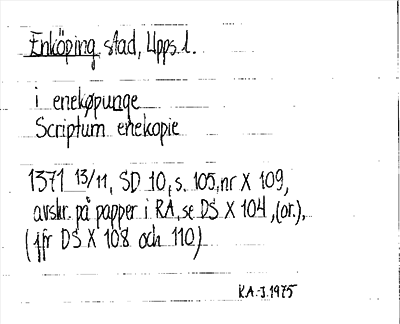 Enköping, stad, Upps. l.
i enekøpunge
Scriptum enekopie
1371 13/11, SD 10, s. 105, nr X 109,
avskr. på papper i RA, se DS X 104, (or.),
(jfr DS X 108 och 110)
K.A-J. 1975